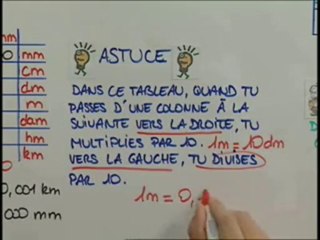 ASTUCE
DANS CE TABLEAU, QUAND TU
PASSES D'UNE COLONNE À LA
SUIVANTE VERS LA DROITE, TU
MULTIPLIES PAR 10. 1m = 10dm
VERS LA GAUCHE, TU DIVISES
PAR 10.
1m = 0,
hm
0 mm
cm
dm
m
dam
hm
km
0,001 km
000 mm